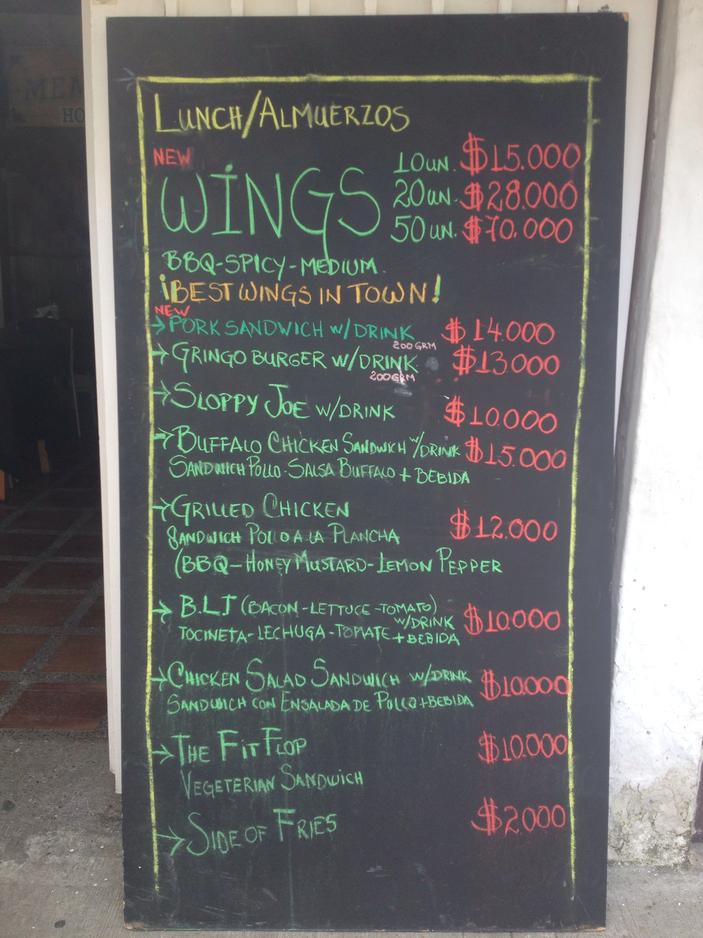 LUNCH/ALMUERZOS
NEW
WiNGS
10 UN. $15.000
20 UN. $28.000
50 UN. $70.000
BBQ-SPICY-MEDIUM.
¡BEST WINGS IN TOWN!
NEW
→ PORK SANDWICH W/DRINK $14.000
200 GRM
→ GRINGO BURGER W/DRINK $13.000
200 GRM
→ SLOPPY JOE W/DRINK $10.000
→ BUFFALO CHICKEN SANDWICH W/DRINK $15.000
SANDWICH POLLO-SALSA BUFFALO + BEBIDA
→ GRILLED CHICKEN $12.000
SANDWICH POLLO A LA PLANCHA
(BBQ-HONEY MUSTARD-LEMON PEPPER
→ B.L.T (BACON-LETTUCE-TOMATO) $10.000
W/DRINK
TOCINETA-LECHUGA-TOMATE + BEBIDA
→ CHICKEN SALAD SANDWICH W/DRINK $10.000
SANDWICH CON ENSALADA DE POLLO+BEBIDA
→ THE FIT FLOP $10.000
VEGETERIAN SANDWICH
→ SIDE OF FRIES $2000